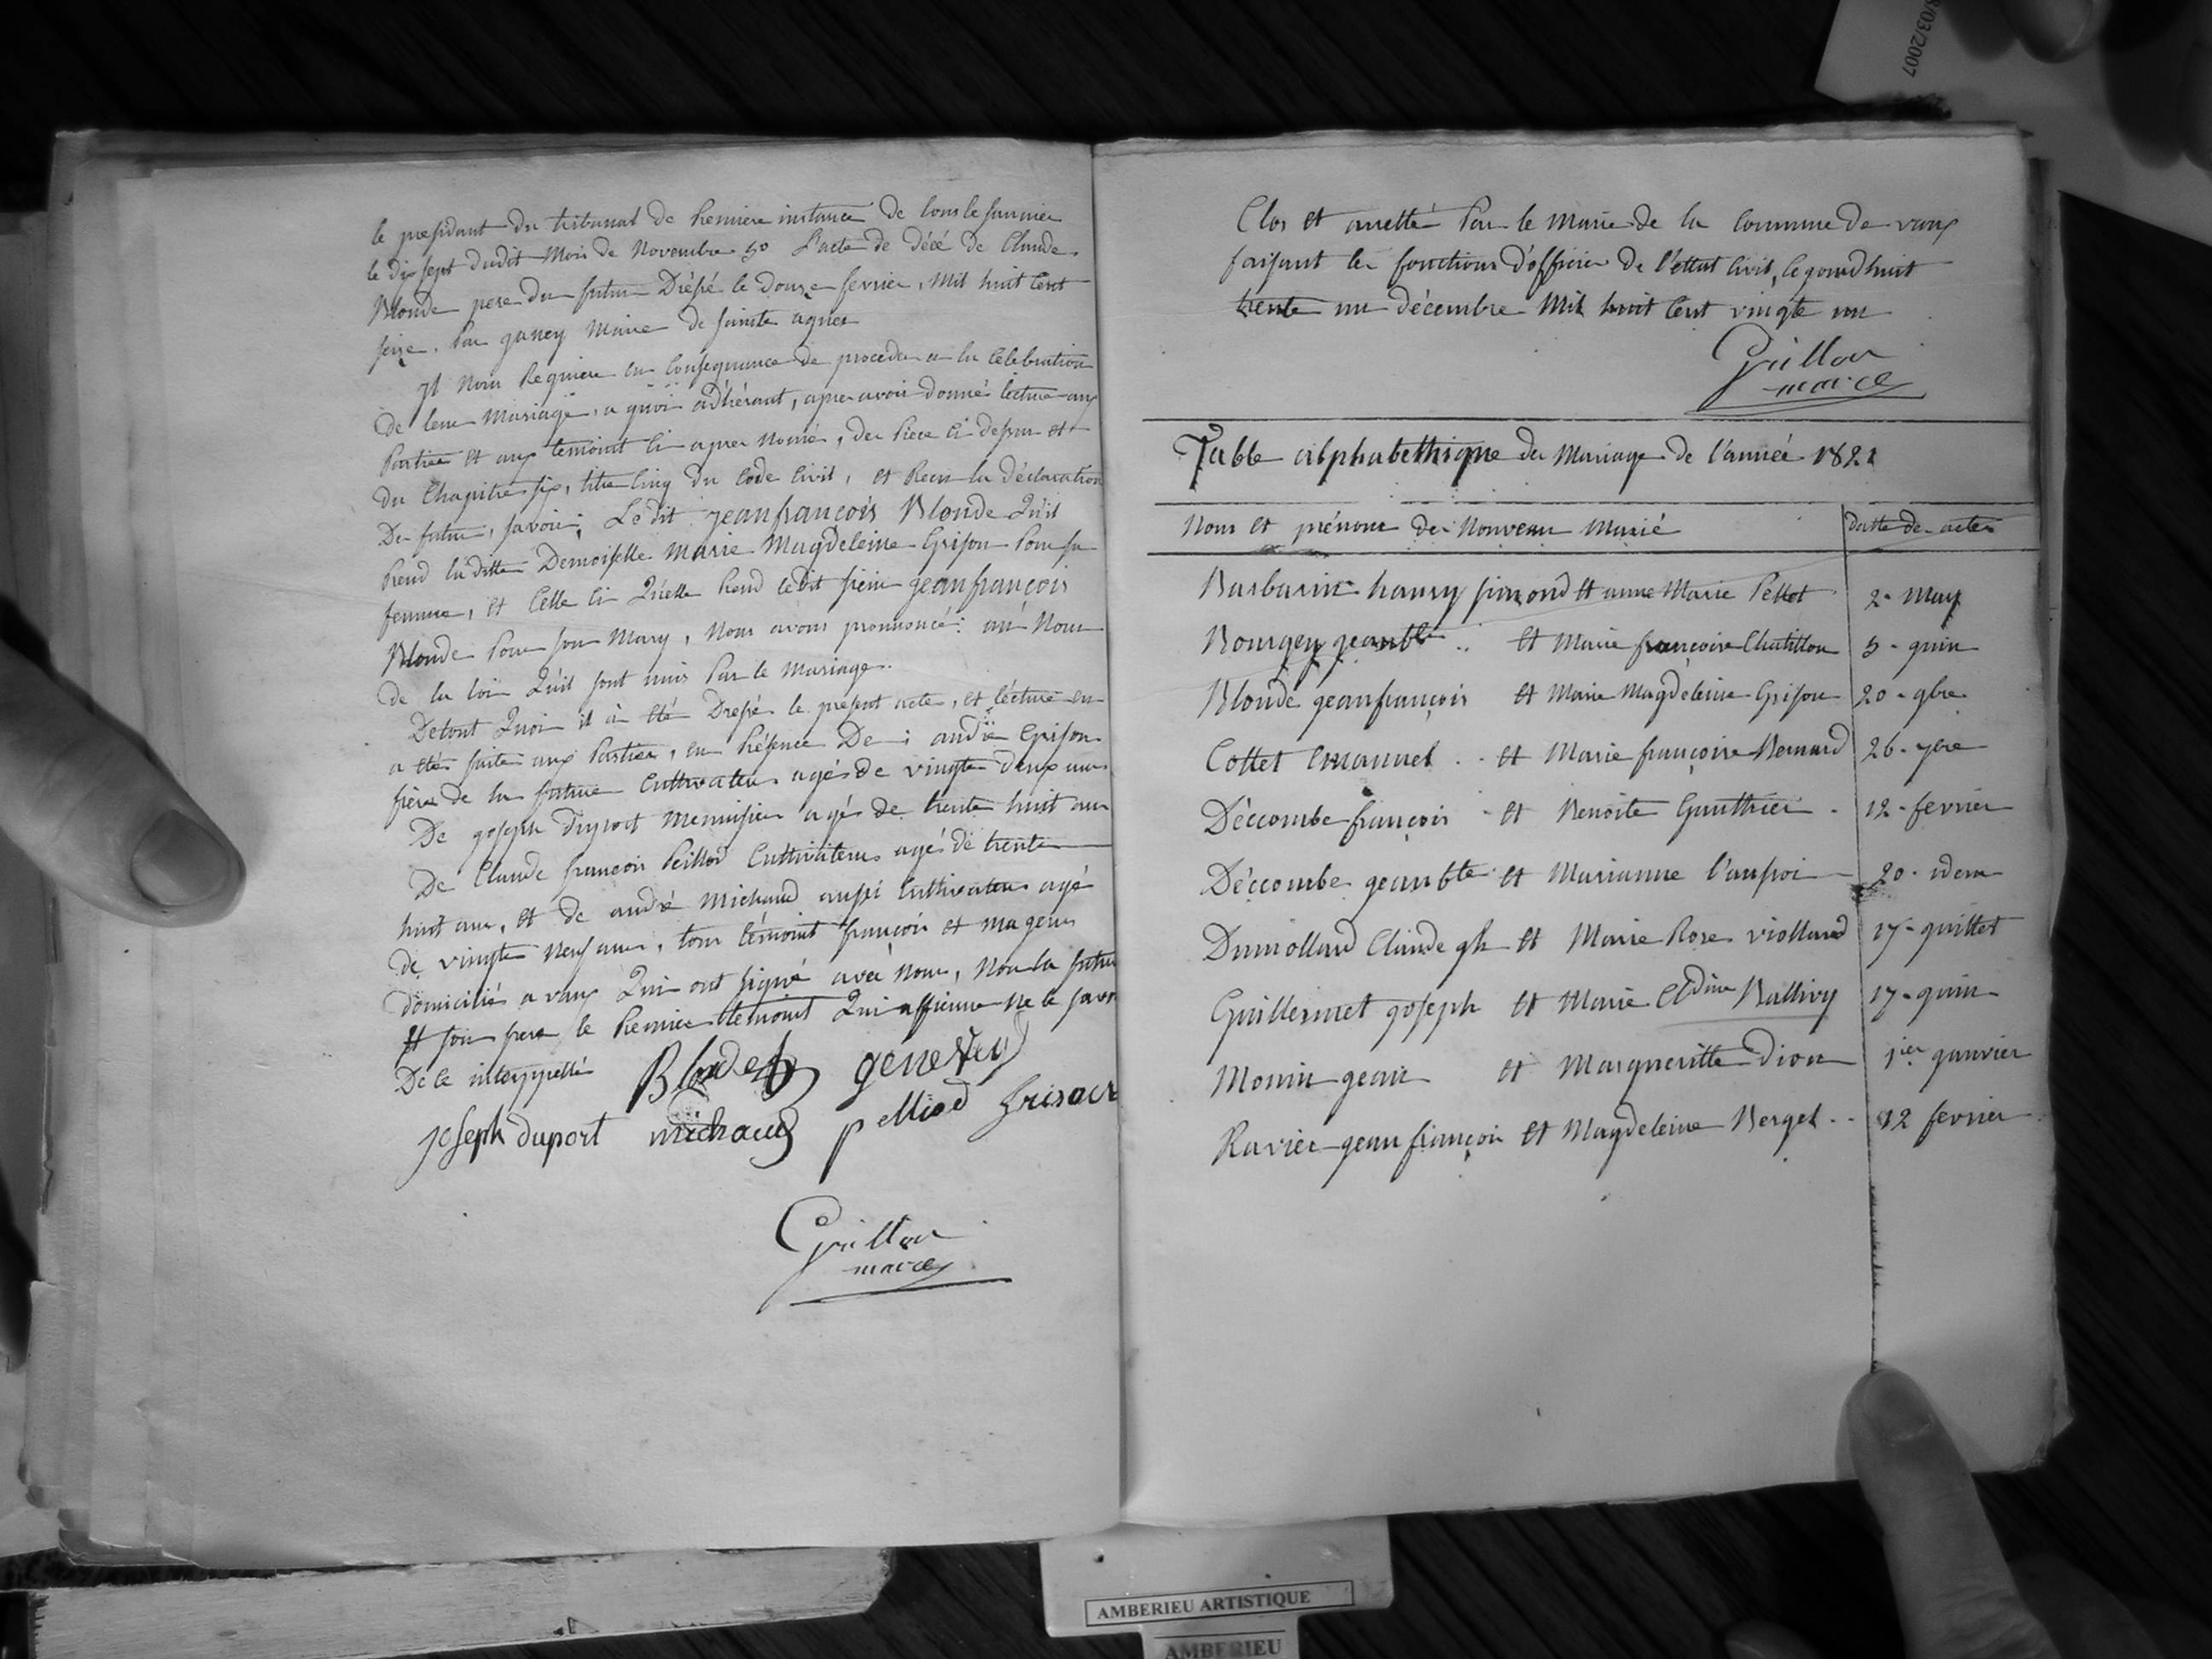 le president du tribunal de Premiere instance de lons le saunier
le dix sept dudit Mois de Novembre 5º L'acte de décé de Claude
Blonde pere du futur Dréssé le douze fevrier, Mil huit Cent
seize. Par ganey Maire de sainte agnes
Il Nous Requiere en Consequance de proceder a la Celebration
de leur Mariage, a quoi adhérant, apres avoir donné lecture aux
Parties et aux temoint ci apres Nomé, des Piece ci dessus et
du Chapitre six, titre Cinq du Code Civil, et Recu la déclaration
De futur, savoir; Ledit jeanfrancois Blonde Qu'il
Prend laditte Demoiselle Marie Magdeleine Grison Pour sa
femme, et Celle ci Qu'elle Prend ledit sieur jeanfrançois
Blonde Pour son Mary, Nous avons prononcé: au Nom
de la loi Qu'il sont unis Par le Mariage.
Detout Quoi il à été Dressé le present acte, et lécture en
a été faite aux Parties, en Présence De; andré Grison
frère de la future Cultivateur agés de vingte deux ans
De joseph duport Menuisier agés de trente huit ans
De Claude françois Peillod Cultivateur agés de trente
huit ans, et de andré Michaud aussi Cultivateur agé
de vingte Neuf ans, tous témoint françois et mageur
domicilié a vaux Qui ont signé avec Nous, Non la future
Et son frere le Premier temoint Qui affirme Ne le savoir
De ce interppellé
Blonde genevey
joseph duport michaud pelliod Grison
Guillon
maire
Clos et arretté Par le Maire de la Commune de vaux
faisant les fonctions d'officier de l'ettat Civil, le jourdhuit
trente un décembre Mil huit Cent vingte un
Guillon
maire
Table alphabethique du Mariage de l'année 1821
Noms et prénoms des Nouveau Marié
datte des actes
Barbarin haury simond et anne Marie Pellot 2. May
Bourgey jeanbte .. et Marie françoise Chatillon 5. juin
Blonde jeanfrançois et Marie Magdeleine Grison 20. 9bre
Cottet Emanuel .. et Marie françoise Bernard 26. 9bre
Déccombe françois et Benoite Gauthier . 12. fevrier
Déccombe jeanbte et Marianne l'auproi 20. idem
Dumollard Claude jh et Marie Rose viollard 17. juillet
Guillermet joseph et Marie Cldine Ballivy 17. juin
Monin jean et Margueritte Dion 1ier janvier
Ravier jean françois et Magdeleine Berget .. 12 fevrier
8/03/2007
AMBERIEU ARTISTIQUE
AMBERIEU